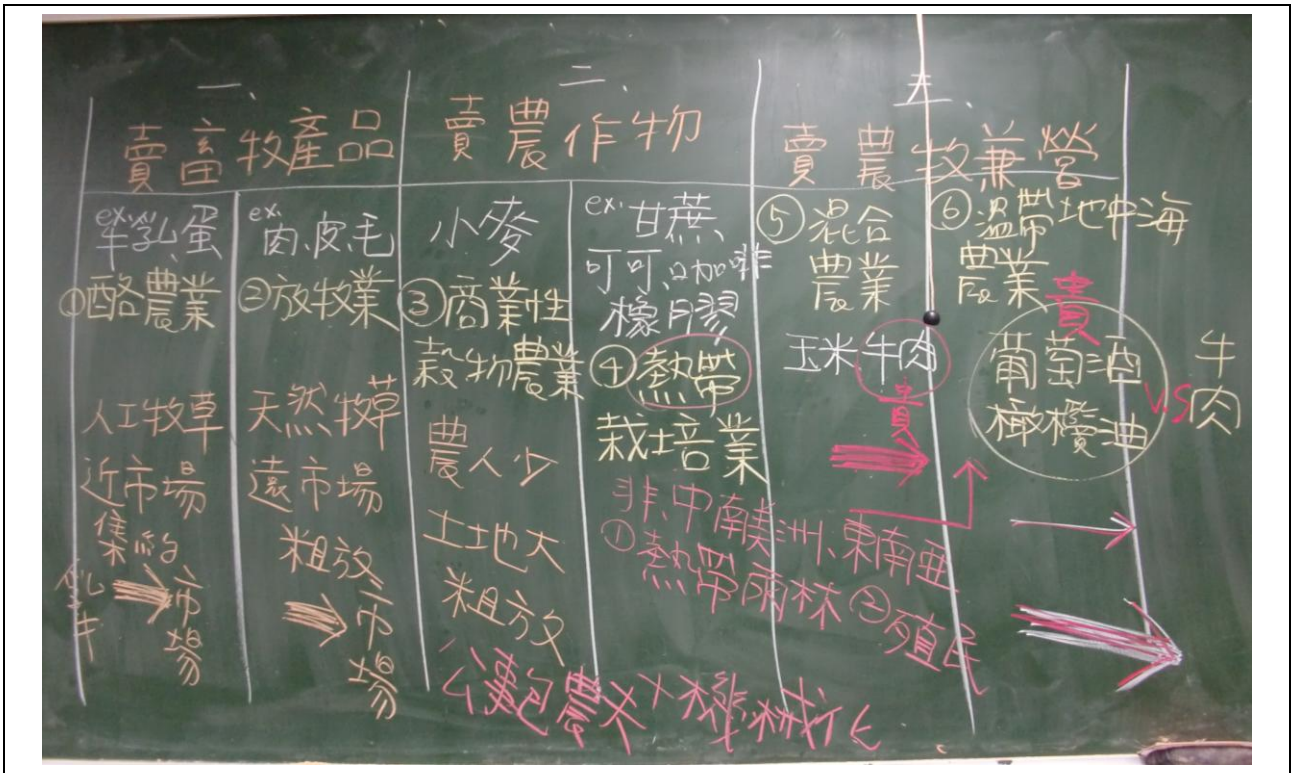 一、
賣畜牧產品
ex.
牛乳、蛋
①酪農業
人工牧草
近市場
集約
乳牛
市場
ex.
肉、皮、毛
②放牧業
天然牧草
遠市場
粗放
市場
二、
賣農作物
小麥
③商業性
穀物農業
農人少
土地大
粗放
公事包農夫+機械化
ex.甘蔗、
可可、咖啡
橡膠
④熱帶
栽培業
非、中南美洲、東南亞
①熱帶雨林②殖民
三、
賣農牧兼營
⑤混合
農業
玉米牛肉
貴
⑥溫帶地中海
農業
貴
葡萄酒
橄欖油
VS
牛肉